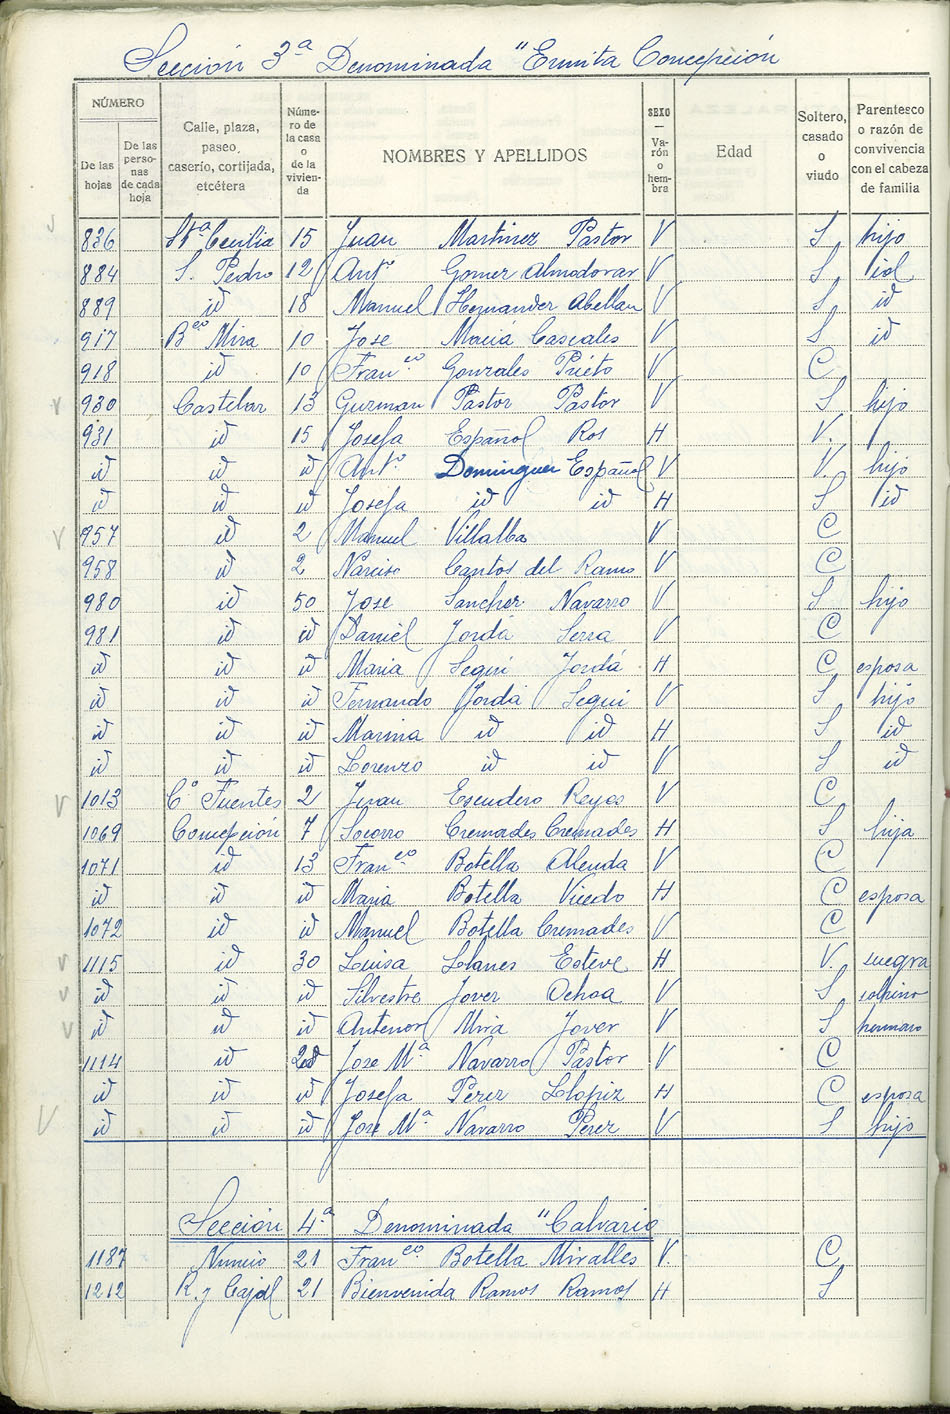 Sección 3ª Denominada "Ermita Concepción
NÚMERO
De las hojas
De las personas de cada hoja
Calle, plaza, paseo, caserío, cortijada, etcétera
Número de la casa o de la vivienda
NOMBRES Y APELLIDOS
SEXO — Varón o hembra
Edad
Soltero, casado o viudo
Parentesco o razón de convivencia con el cabeza de familia
836 Stª Cecilia 15 Juan Martinez Pastor V S hijo
884 S. Pedro 12 Antº Gomez Almodovar V S id
889 id 18 Manuel Hernandez Abellan V S id
917 Bco Mira 10 Jose Maciá Cascales V S id
918 id 10 Franco Gonzales Prieto V C
930 Castelar 13 Guzman Pastor Pastor V S hijo
931 id 15 Josefa Español Ros H V.
id id id Antº Dominguez Español V V. hijo
id id id Josefa id id H S id
957 id 2 Manuel Villalba V C
958 id 2 Narciso Cantos del Ramo V C
980 id 50 Jose Sanchez Navarro V S hijo
981 id id Daniel Jordá Serra V C
id id id Maria Segui Jordá H C esposa
id id id Fernando Jordá Segui V S hijo
id id id Marina id id H S id
id id id Lorenzo id id V S id
1013 Cº Fuentes 2 Juan Escudero Reyes V C
1069 Concepción 7 Socorro Cremades Cremades H S hija
1071 id 13 Franco Botella Alenda V C
id id id Maria Botella Vicedo H C esposa
1072 id id Manuel Botella Cremades V C
1115 id 30 Luisa Llanes Esteve H V. suegra
id id id Silvestre Jover Ochoa V S sobrino
id id id Antenor Mira Jover V S hermano
1114 id id Jose Mª Navarro Pastor V C
id id id Josefa Perez Llopiz H C esposa
id id id Jose Mª Navarro Perez V S hijo
Sección 4ª Denominada "Calvario
1187 Numéro 21 Franco Botella Miralles V. C
1212 R. y Cajal 21 Bienvenida Ramos Ramos H S